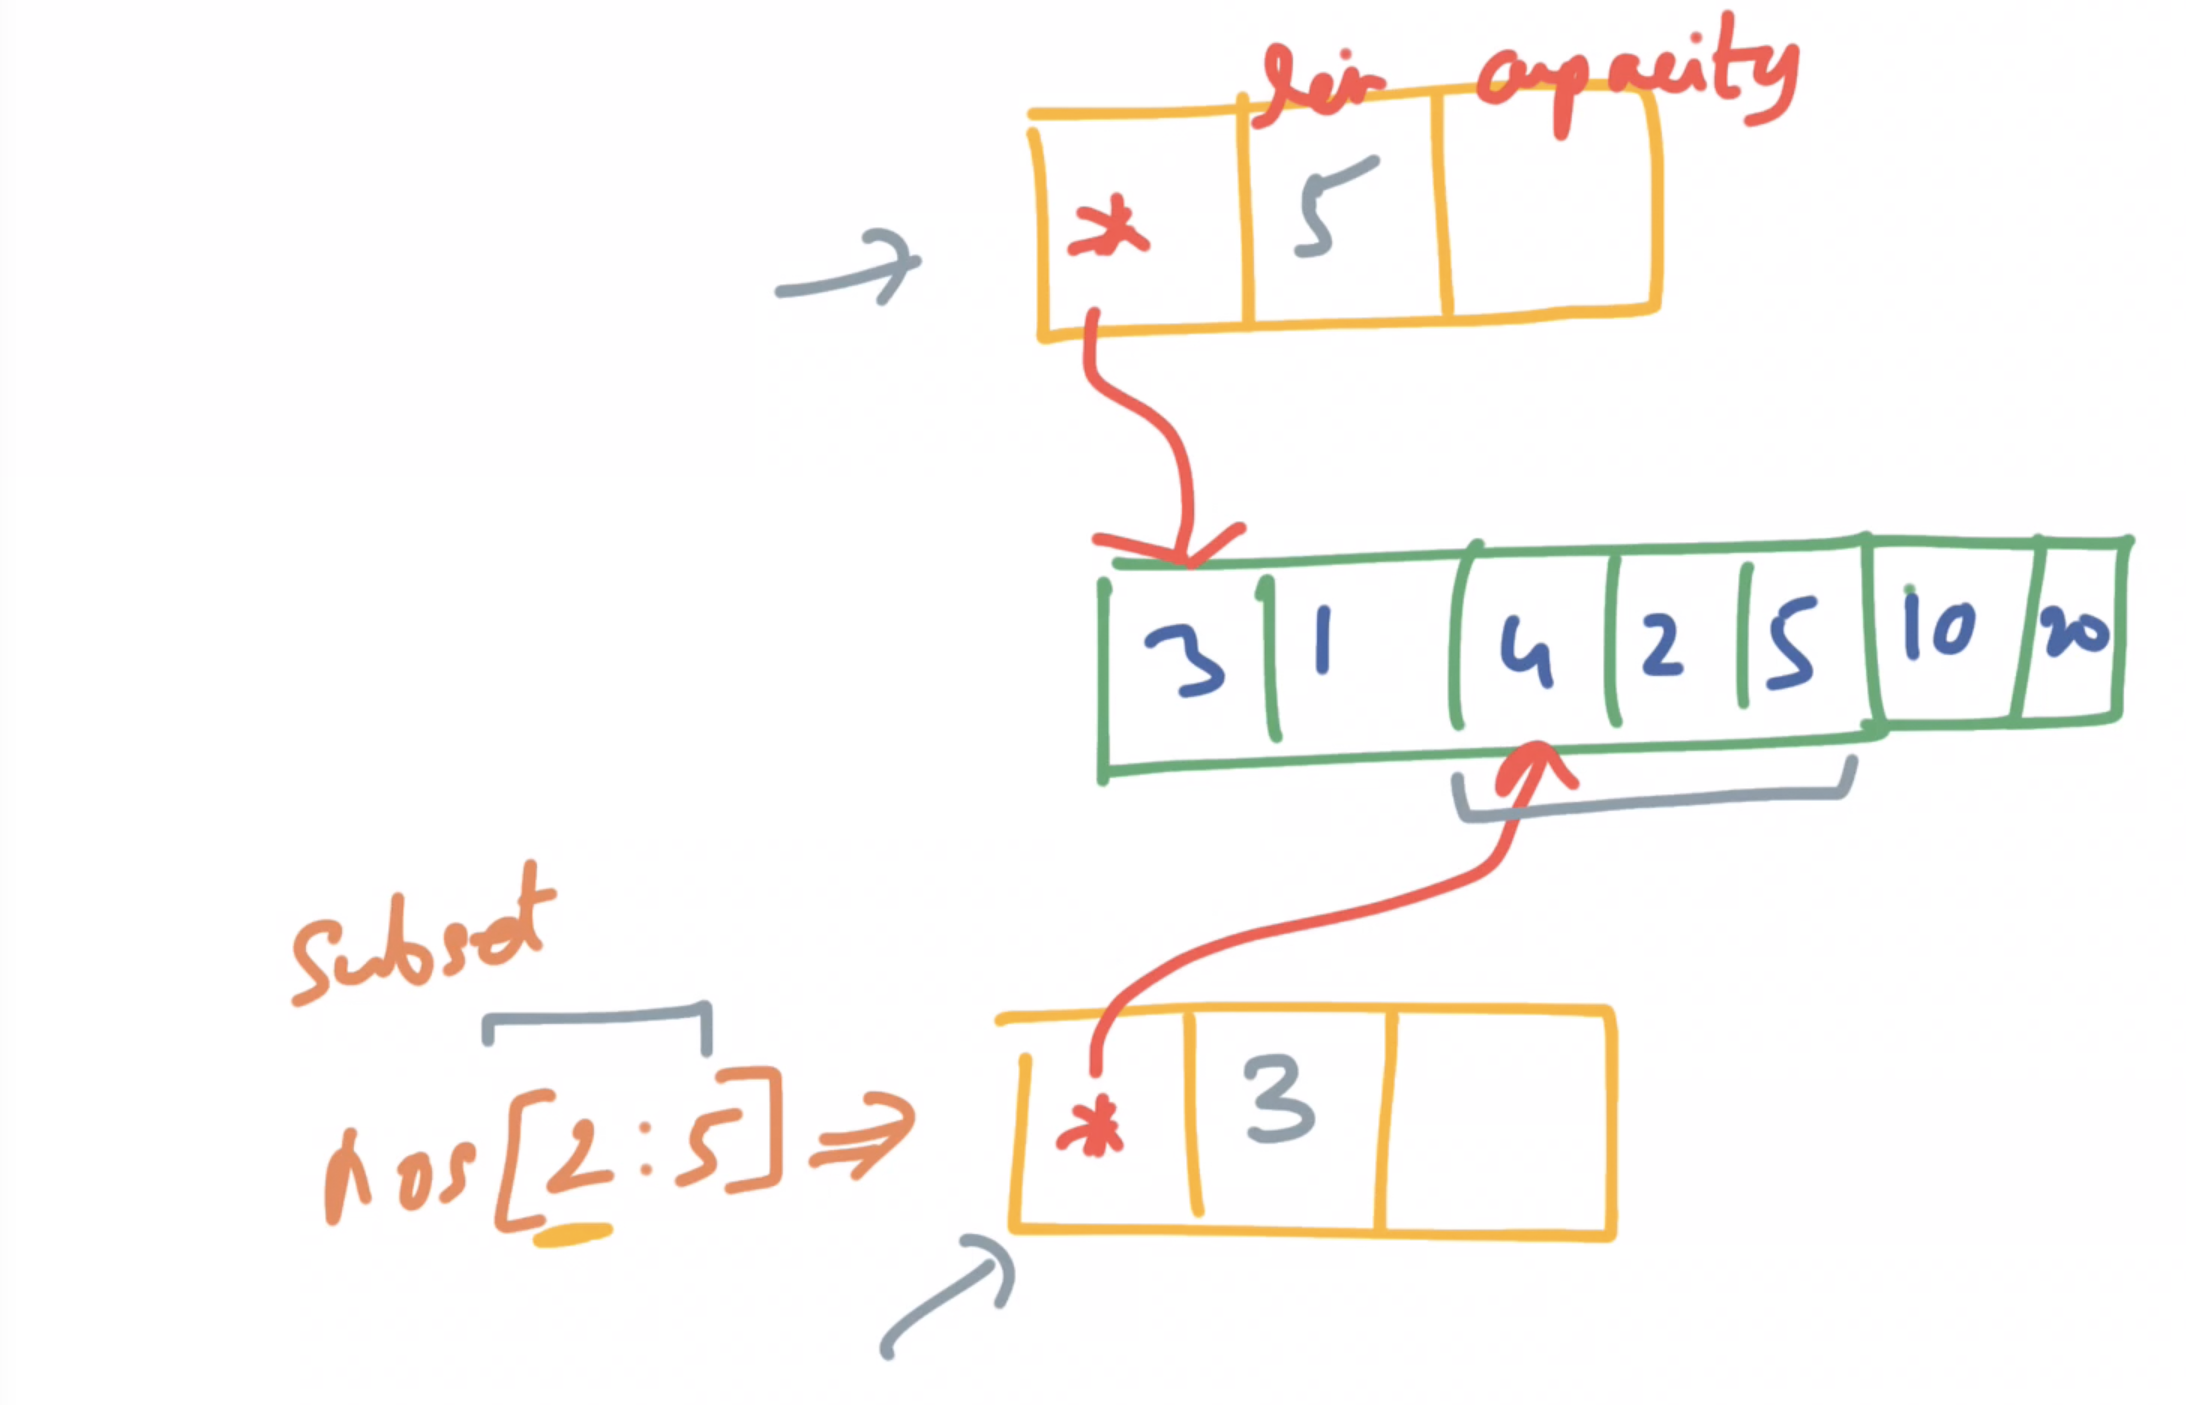 len capacity
* 5
3 1 4 2 5 10 20
Subset
nos[2:5] ⇒ * 3